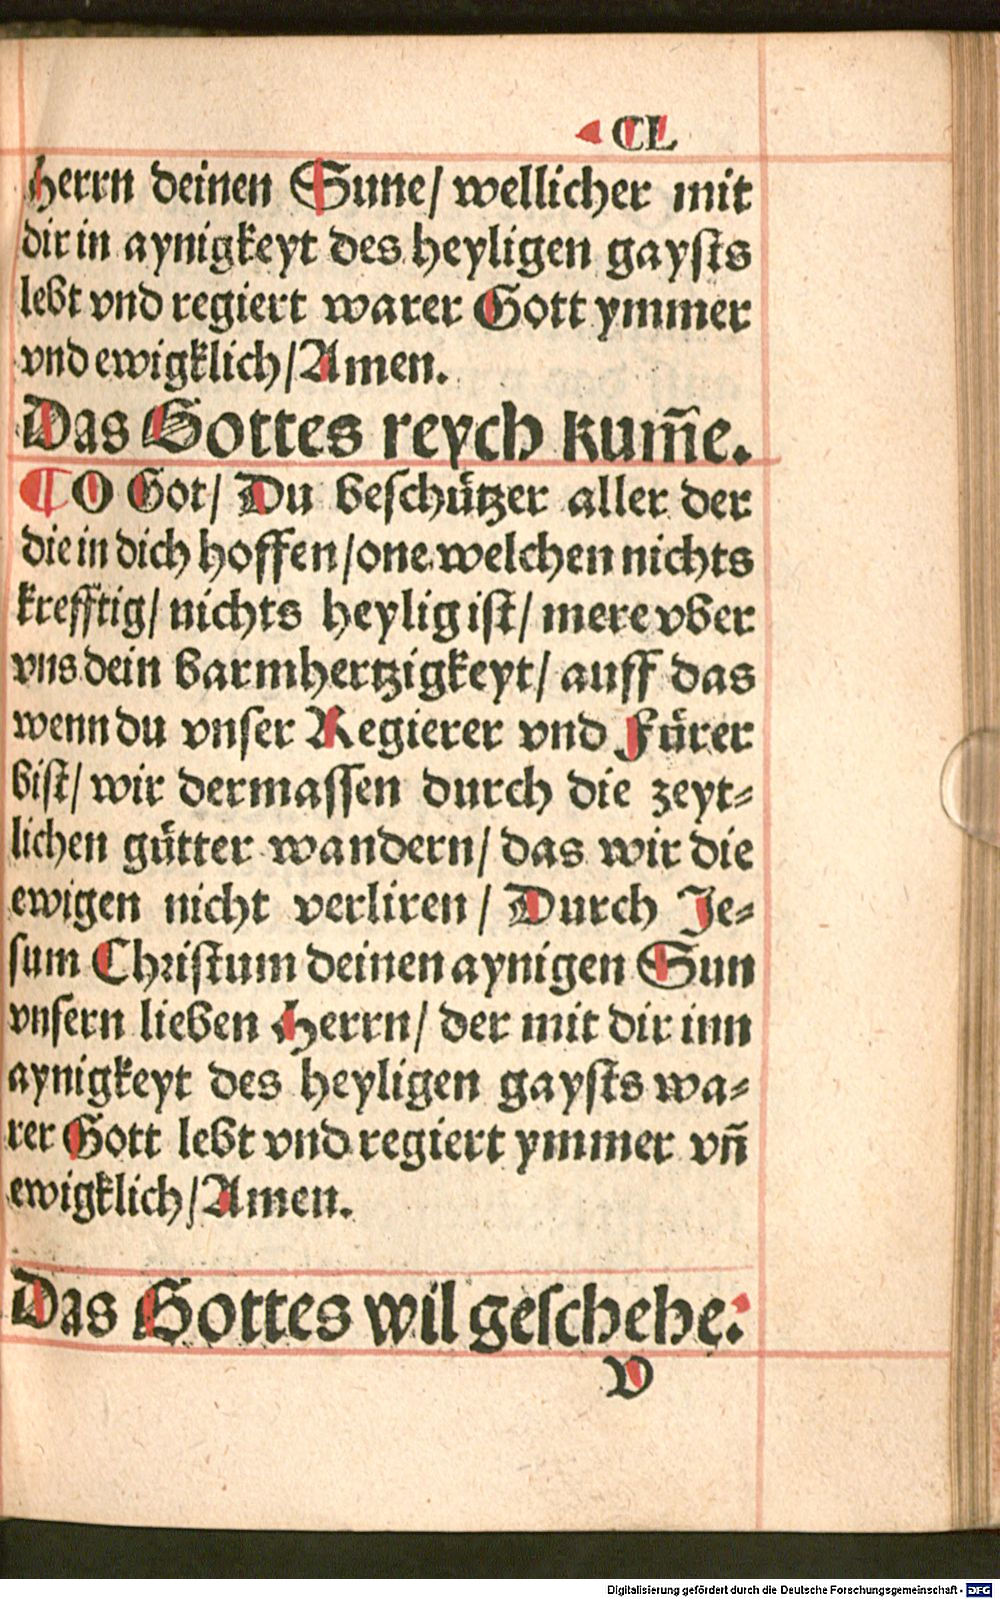 CL
Herrn deinen Sune/ wellicher mit
dir in aynigkeyt des heyligen gaysts
lebt vnd regiert warer Gott ymmer
vnd ewigklich/ Amen.
Das Gottes reych kum̃e.
¶O Got/ Du beschützer aller der
die in dich hoffen/ one welchen nichts
krefftig/ nichts heylig ist/ mere vber
vns dein barmhertzigkeyt/ auff das
wenn du vnser Regierer vnd Fürer
bist/ wir dermassen durch die zeyt⸗
lichen gütter wandern/ das wir die
ewigen nicht verliren/ Durch Je⸗
sum Christum deinen aynigen Sun
vnsern lieben Herrn/ der mit dir inn
aynigkeyt des heyligen gaysts wa⸗
rer Gott lebt vnd regiert ymmer vñ
ewigklich/ Amen.
Das Gottes wil geschehe:
V
Digitalisierung gefördert durch die Deutsche Forschungsgemeinschaft - DFG